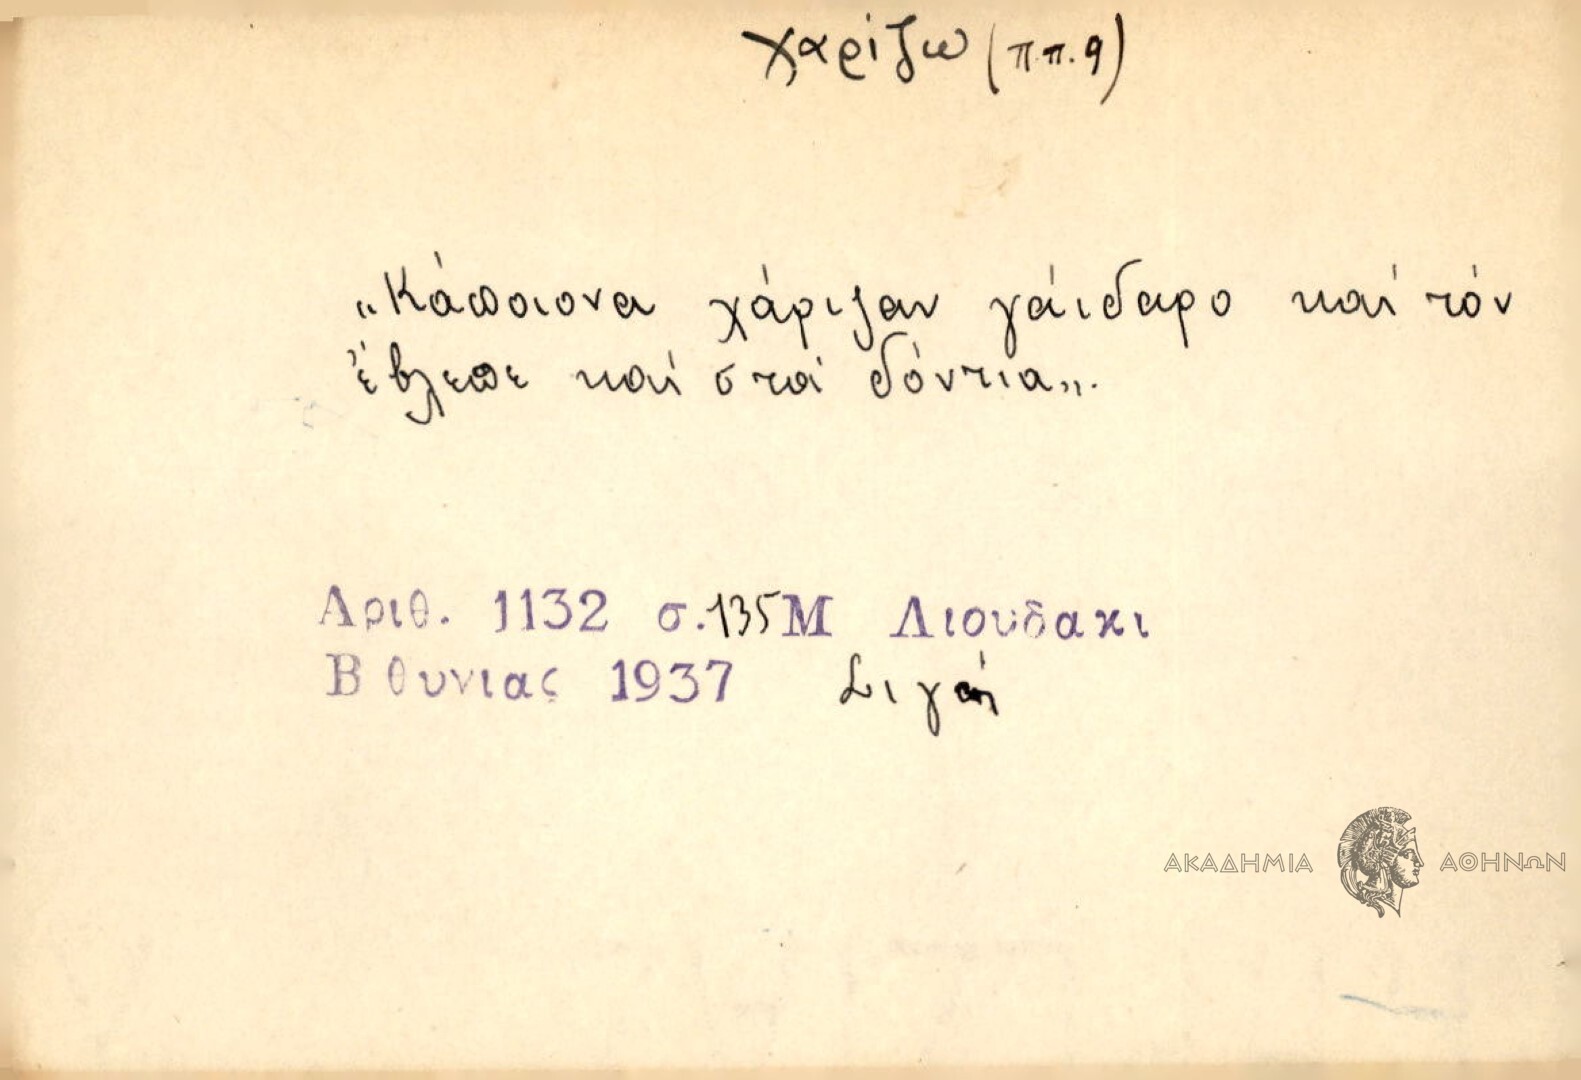 χαρίζω (π.π. 9)
„Κάποιονα χάριζαν γάιδαρο καί τόν
ἔβλεπε καί στά δόντια„.
Αριθ. 1132 σ. 135 Μ Λιουδακι
Β θυνιας 1937 Σιγή
ΑΚΑΔΗΜΙΑ ΑΘΗΝΩΝ